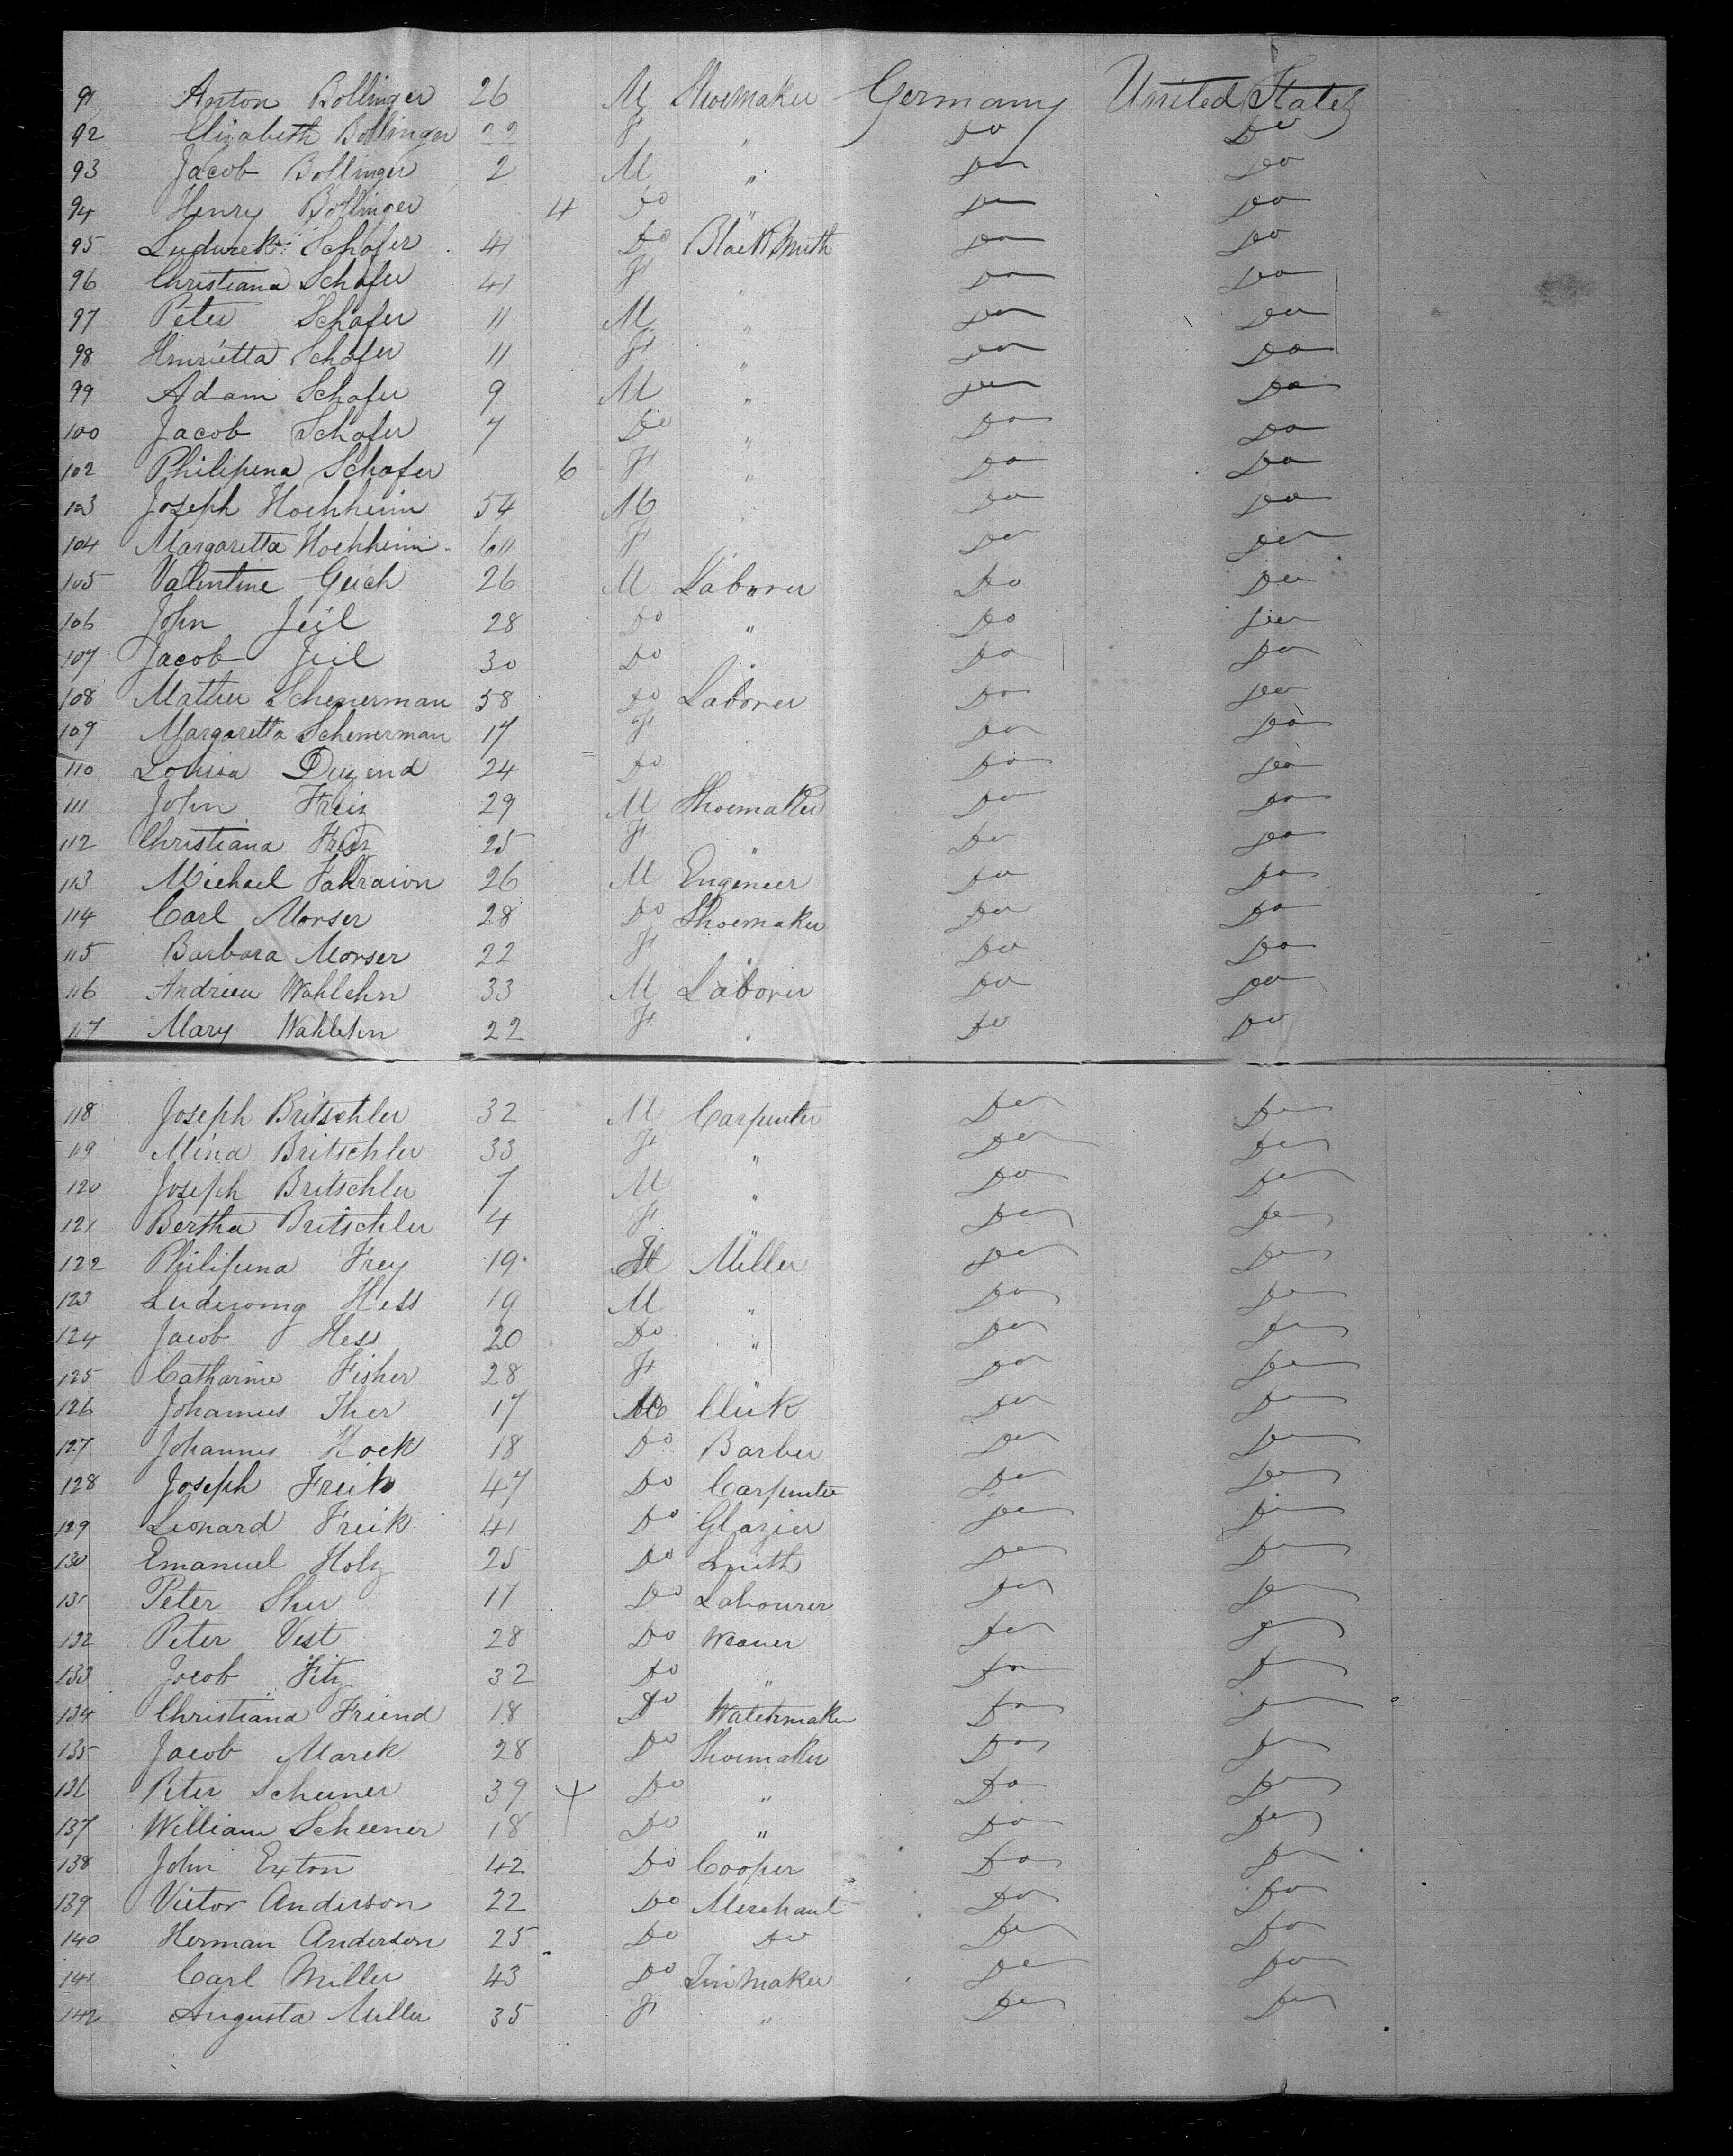 91 Anton Bollinger 26 M Shoemaker Germany United States
92 Elizabeth Bollinger 22 F " Do Do
93 Jacob Bollinger 2 M " Do Do
94 Henry Bollinger 4 Do " Do Do
95 Schafer 41 Do BlackSmith Do Do
96 Christiana Schafer 41 F " Do Do
97 Peter Schafer 11 M " Do Do
98 Henrietta Schafer 11 F " Do Do
99 Adam Schafer 9 M " Do Do
100 Jacob Schafer 7 Do " Do Do
102 Philipena Schafer 6 F " Do Do
103 Joseph Hochheim 54 M Do Do
104 Margaretta Hochheim F Do Do
105 Valentine Geich 26 M Laborer Do Do
106 John Jeil 28 Do " Do Do
107 Jacob Jeil 30 Do Do Do
108 Schenerman 58 Do Laborer Do Do
109 Margaretta Schenerman 17 F Do Do
110 Louisa 24 Do Do Do
111 John Freiz 29 M Shoemaker Do Do
112 Christiana Freiz 25 F " Do Do
113 Michael 26 M Engineer Do Do
114 Carl Morser 28 Do Shoemaker Do Do
115 Barbara Morser 22 F Do Do
116 Andrieu Wahlehn 33 M Laborer Do Do
117 Mary Wahlehn 22 F Do Do
118 Joseph Britschler 32 M Carpenter Do Do
119 Mina Britschler 33 F " Do Do
120 Joseph Britschler 7 M " Do Do
121 Bertha Britschler 4 F " Do Do
122 Philipena Frey 19 F Miller Do Do
123 Hess 19 M " Do Do
124 Jacob Hess 20 Do " Do Do
125 Catharine Fisher 28 F " Do Do
126 17 M Do Do
127 Johannes Hock 18 Do Barber Do Do
128 Joseph Freik 47 Do Carpenter Do Do
129 Leonard Freik 41 Do Glazier Do Do
130 Emanuel Holz 25 Do Smith Do Do
131 Peter Do Labourer Do Do
132 Peter Vest 28 Do Weaver Do Do
133 Jacob Fitz 32 Do " Do Do
134 Christiana Friend 18 Do Watchmaker Do Do
135 Jacob Marek 28 Do Shoemaker Do Do
136 Peter Scheener 39 Do " Do Do
137 William Scheener 18 Do " Do Do
138 John Exton 42 Do Cooper Do Do
139 Victor Anderson 22 Do Merchant Do Do
140 Herman Anderson 25 Do Do Do Do
141 Carl Miller 43 Do Do Do
142 Augusta Miller 35 F " Do Do